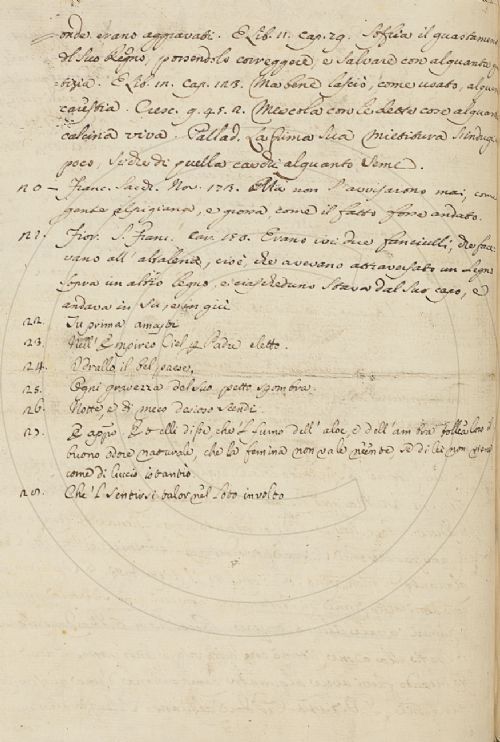 onde erano aggravati. E Lib. 11. cap. 29. Soffria il guastamen
del suo Regno, possendolo correggere e salvare con alquanta
tizia. E Lib. 12. cap. 123. Ma bene lasciò, come usato, alquan
carestia. Cresc. 9. 45. 2. Mescola con le dette cose alquant
calcina viva. Pallad. La prima sua mietitura s'indugi
poco, sicchè di quella caschi alquanto semi.
20 — Franc. Sacch. Nov. 173. Ma non l'avvisarono mai, come
gente alpigiana, e grossa come il fatto fosse andato.
21. Fior. S. Franc. Car. 150. Erano ivi due fanciulli, che face
vano all' altalena, cioè, che avevano attraversato un legno
sopra un altro legno, e ciascheduno stava dal suo capo, e
andava in su, e in giù
22. In prima amaste
23. Nell' Empireo Ciel per Padre eletto.
24. Udrallo il bel paese,
25. Ogni gravezza del suo petto sgombra.
26. Notte e dì meco desioso scendi
27. E appo. Et elli disse, che 'l fiuno dell' aloe e dell' ambra
buono odore naturale, che la femina non vale niente se di lei non viene
come di luccio stantio.
28. Che 'l sentirsi talor nel loto involto